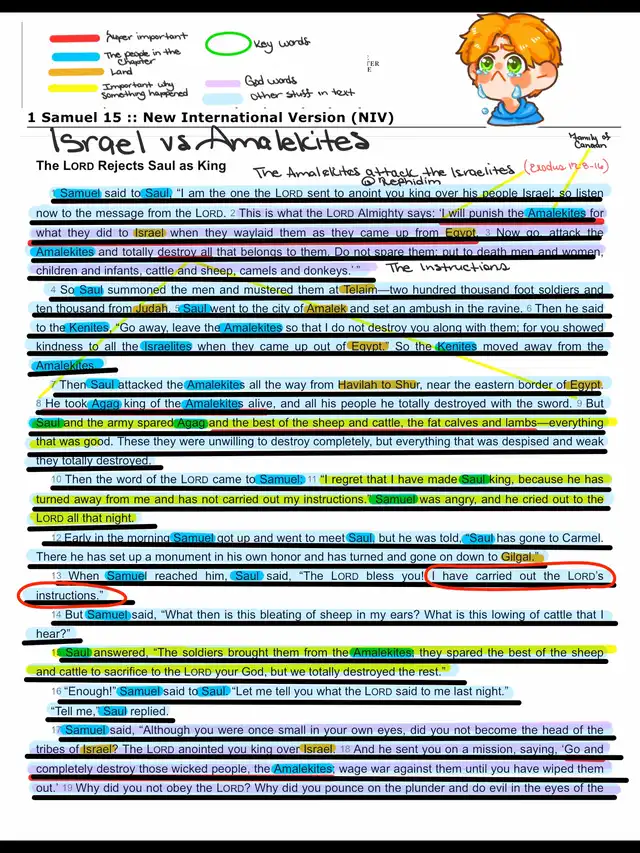 Super important
The people in the
Chapter
Land
Important why
something happened
Key words
God words
other stuff in text
TER
E
1 Samuel 15 :: New International Version (NIV)
Israel vs Amalekites
Family of
Canaan
The LORD Rejects Saul as King
The Amalekites attack the Israelites (Exodus 17:8-16)
@ Rephidim
1 Samuel said to Saul, “I am the one the LORD sent to anoint you king over his people Israel; so listen
now to the message from the LORD. 2 This is what the LORD Almighty says: ‘I will punish the Amalekites for
what they did to Israel when they waylaid them as they came up from Egypt. 3 Now go, attack the
Amalekites and totally destroy all that belongs to them. Do not spare them; put to death men and women,
children and infants, cattle and sheep, camels and donkeys.’ ”
The Instructions
4 So Saul summoned the men and mustered them at Telaim—two hundred thousand foot soldiers and
ten thousand from Judah. 5 Saul went to the city of Amalek and set an ambush in the ravine. 6 Then he said
to the Kenites, “Go away, leave the Amalekites so that I do not destroy you along with them; for you showed
kindness to all the Israelites when they came up out of Egypt.” So the Kenites moved away from the
Amalekites.
7 Then Saul attacked the Amalekites all the way from Havilah to Shur, near the eastern border of Egypt.
8 He took Agag king of the Amalekites alive, and all his people he totally destroyed with the sword. 9 But
Saul and the army spared Agag and the best of the sheep and cattle, the fat calves and lambs—everything
that was good. These they were unwilling to destroy completely, but everything that was despised and weak
they totally destroyed.
10 Then the word of the LORD came to Samuel: 11 “I regret that I have made Saul king, because he has
turned away from me and has not carried out my instructions.” Samuel was angry, and he cried out to the
LORD all that night.
12 Early in the morning Samuel got up and went to meet Saul, but he was told, “Saul has gone to Carmel.
There he has set up a monument in his own honor and has turned and gone on down to Gilgal.”
13 When Samuel reached him, Saul said, “The LORD bless you! I have carried out the LORD’s
instructions.”
14 But Samuel said, “What then is this bleating of sheep in my ears? What is this lowing of cattle that I
hear?”
15 Saul answered, “The soldiers brought them from the Amalekites; they spared the best of the sheep
and cattle to sacrifice to the LORD your God, but we totally destroyed the rest.”
16 “Enough!” Samuel said to Saul. “Let me tell you what the LORD said to me last night.”
“Tell me,” Saul replied.
17 Samuel said, “Although you were once small in your own eyes, did you not become the head of the
tribes of Israel? The LORD anointed you king over Israel. 18 And he sent you on a mission, saying, ‘Go and
completely destroy those wicked people, the Amalekites; wage war against them until you have wiped them
out.’ 19 Why did you not obey the LORD? Why did you pounce on the plunder and do evil in the eyes of the